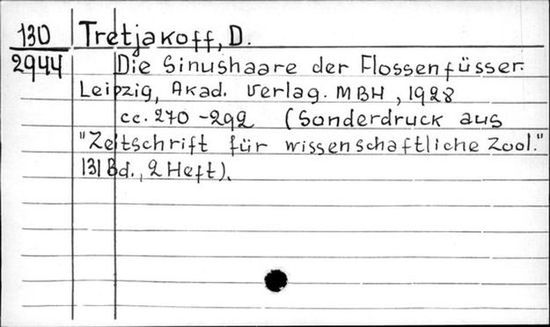 130 Tretjakoff, D.
2944 Die Sinushaare der Flossenfüsser.
Leipzig, Akad. Verlag. MBH, 1928
cc. 270-292 (Sonderdruck aus
"Zeitschrift für wissenschaftliche Zool."
131 Bd., 2 Heft).